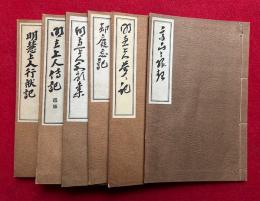 高山寺縁起
明恵上人夢之記
却癈忘記
明恵上人歌集
明恵上人伝記
明慧上人行状記